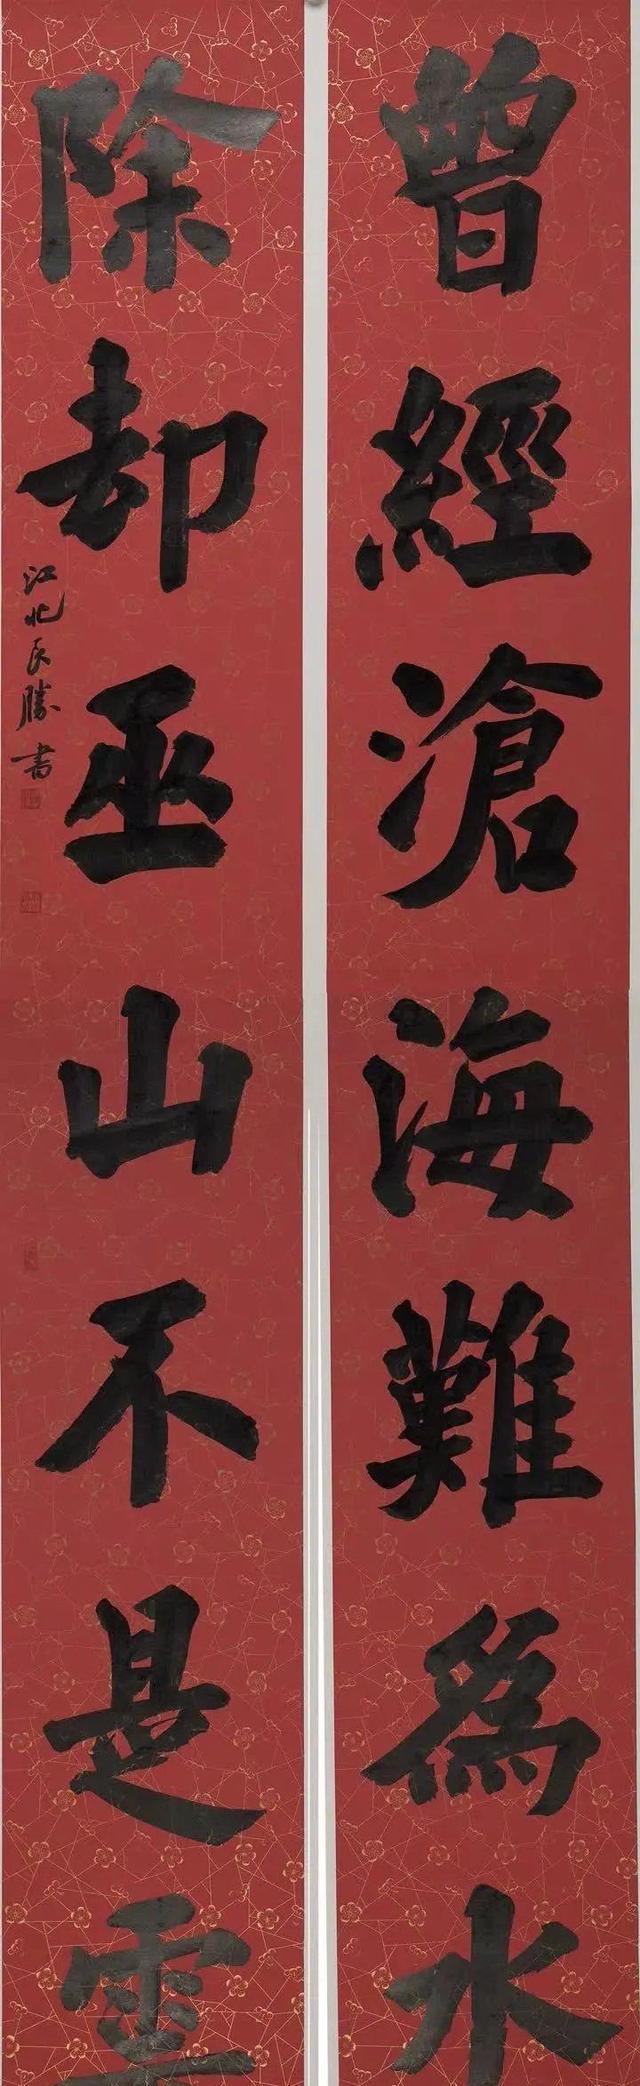 曾經滄海難為水
除却巫山不是雲
江北民勝書